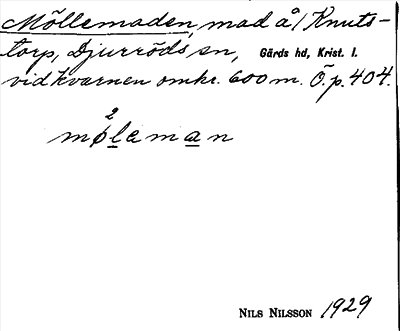 Möllemaden, mad å / Knuts-
torp, Djurröds sn, Gärds hd, Krist. l.
vid kvarnen omkr. 600 m. Ö. p. 404.
2
møleman
NILS NILSSON 1929